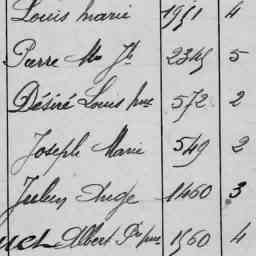 Louis marie 1951 4
Pierre Mie Jh 2345 5
Désiré Louis 572 2
Joseph Marie 549 2
Julien Ange 1460 3
Albert 1560 4